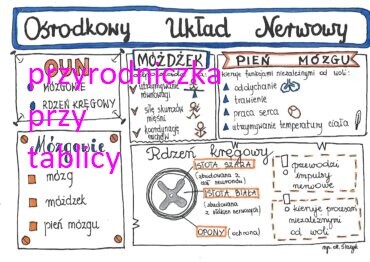 Ośrodkowy Układ Nerwowy
OUN
MÓZGOWIE
RDZEŃ KRĘGOWY
przyrodniczka
przy
tablicy
MÓŻDŻEK
utrzymywanie
równowagi
siłę skurczów
mięśni
koordynację
ruchów
PIEŃ MÓZGU
kieruje funkcjami niezależnymi od woli:
oddychanie
trawienie
praca serca
utrzymywanie temperatury ciała
Mózgowie
mózg
móżdżek
pień mózgu
Rdzeń kręgowy
ISTOTA SZARA
(zbudowana z
ciał neuronów)
ISTOTA BIAŁA
(zbudowana
z włókien nerwowych)
OPONY (ochrona)
przewodzi
impulsy
nerwowe
kieruje procesami
niezależnymi
od woli